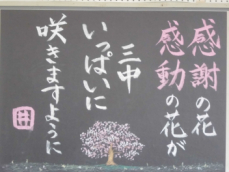 感謝の花
感動の花が
三中
いっぱいに
咲きますように